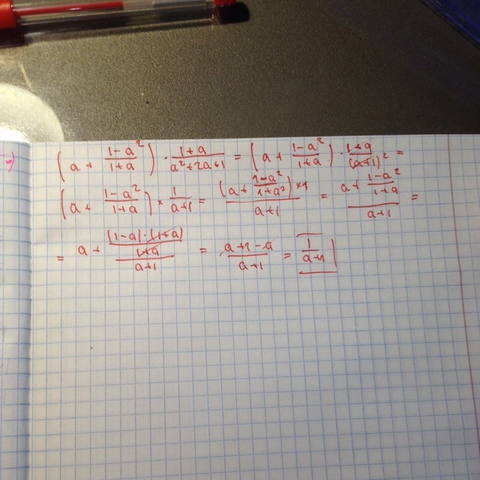 (a + (1-a²)/(1+a)) · (1+a)/(a²+2a+1) = (a + (1-a²)/(1+a)) · (1+a)/(a+1)² =
(a + (1-a²)/(1+a)) × 1/(a+1) = ((a + (1-a²)/(1+a²)) × 1)/(a+1) = (a + (1-a²)/(1+a))/(a+1) =
= (a + ((1-a)·(1+a))/(1+a))/(a+1) = (a+1-a)/(a+1) = 1/(a+1)